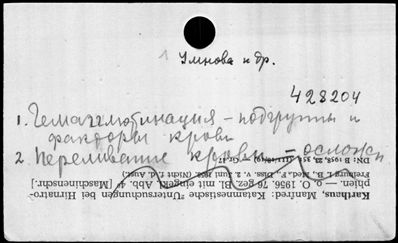 1 Умнова и др.
428204
1. Гемагглютинация – подгруппы и
факторы крови
2. Переливание крови – осложн
Karthaus, Manfred: Katamnestische Untersuchungen bei Hirnatro-
phien. — o. O. 1956. 76 gez. Bl. mit eingekl. Abb. 4° [Maschinenschr.]
Freiburg i. B., Med. F., Diss. v. 2. Juni 1956 (Nicht f. d. Aust.)
DN: B 1958, 23,